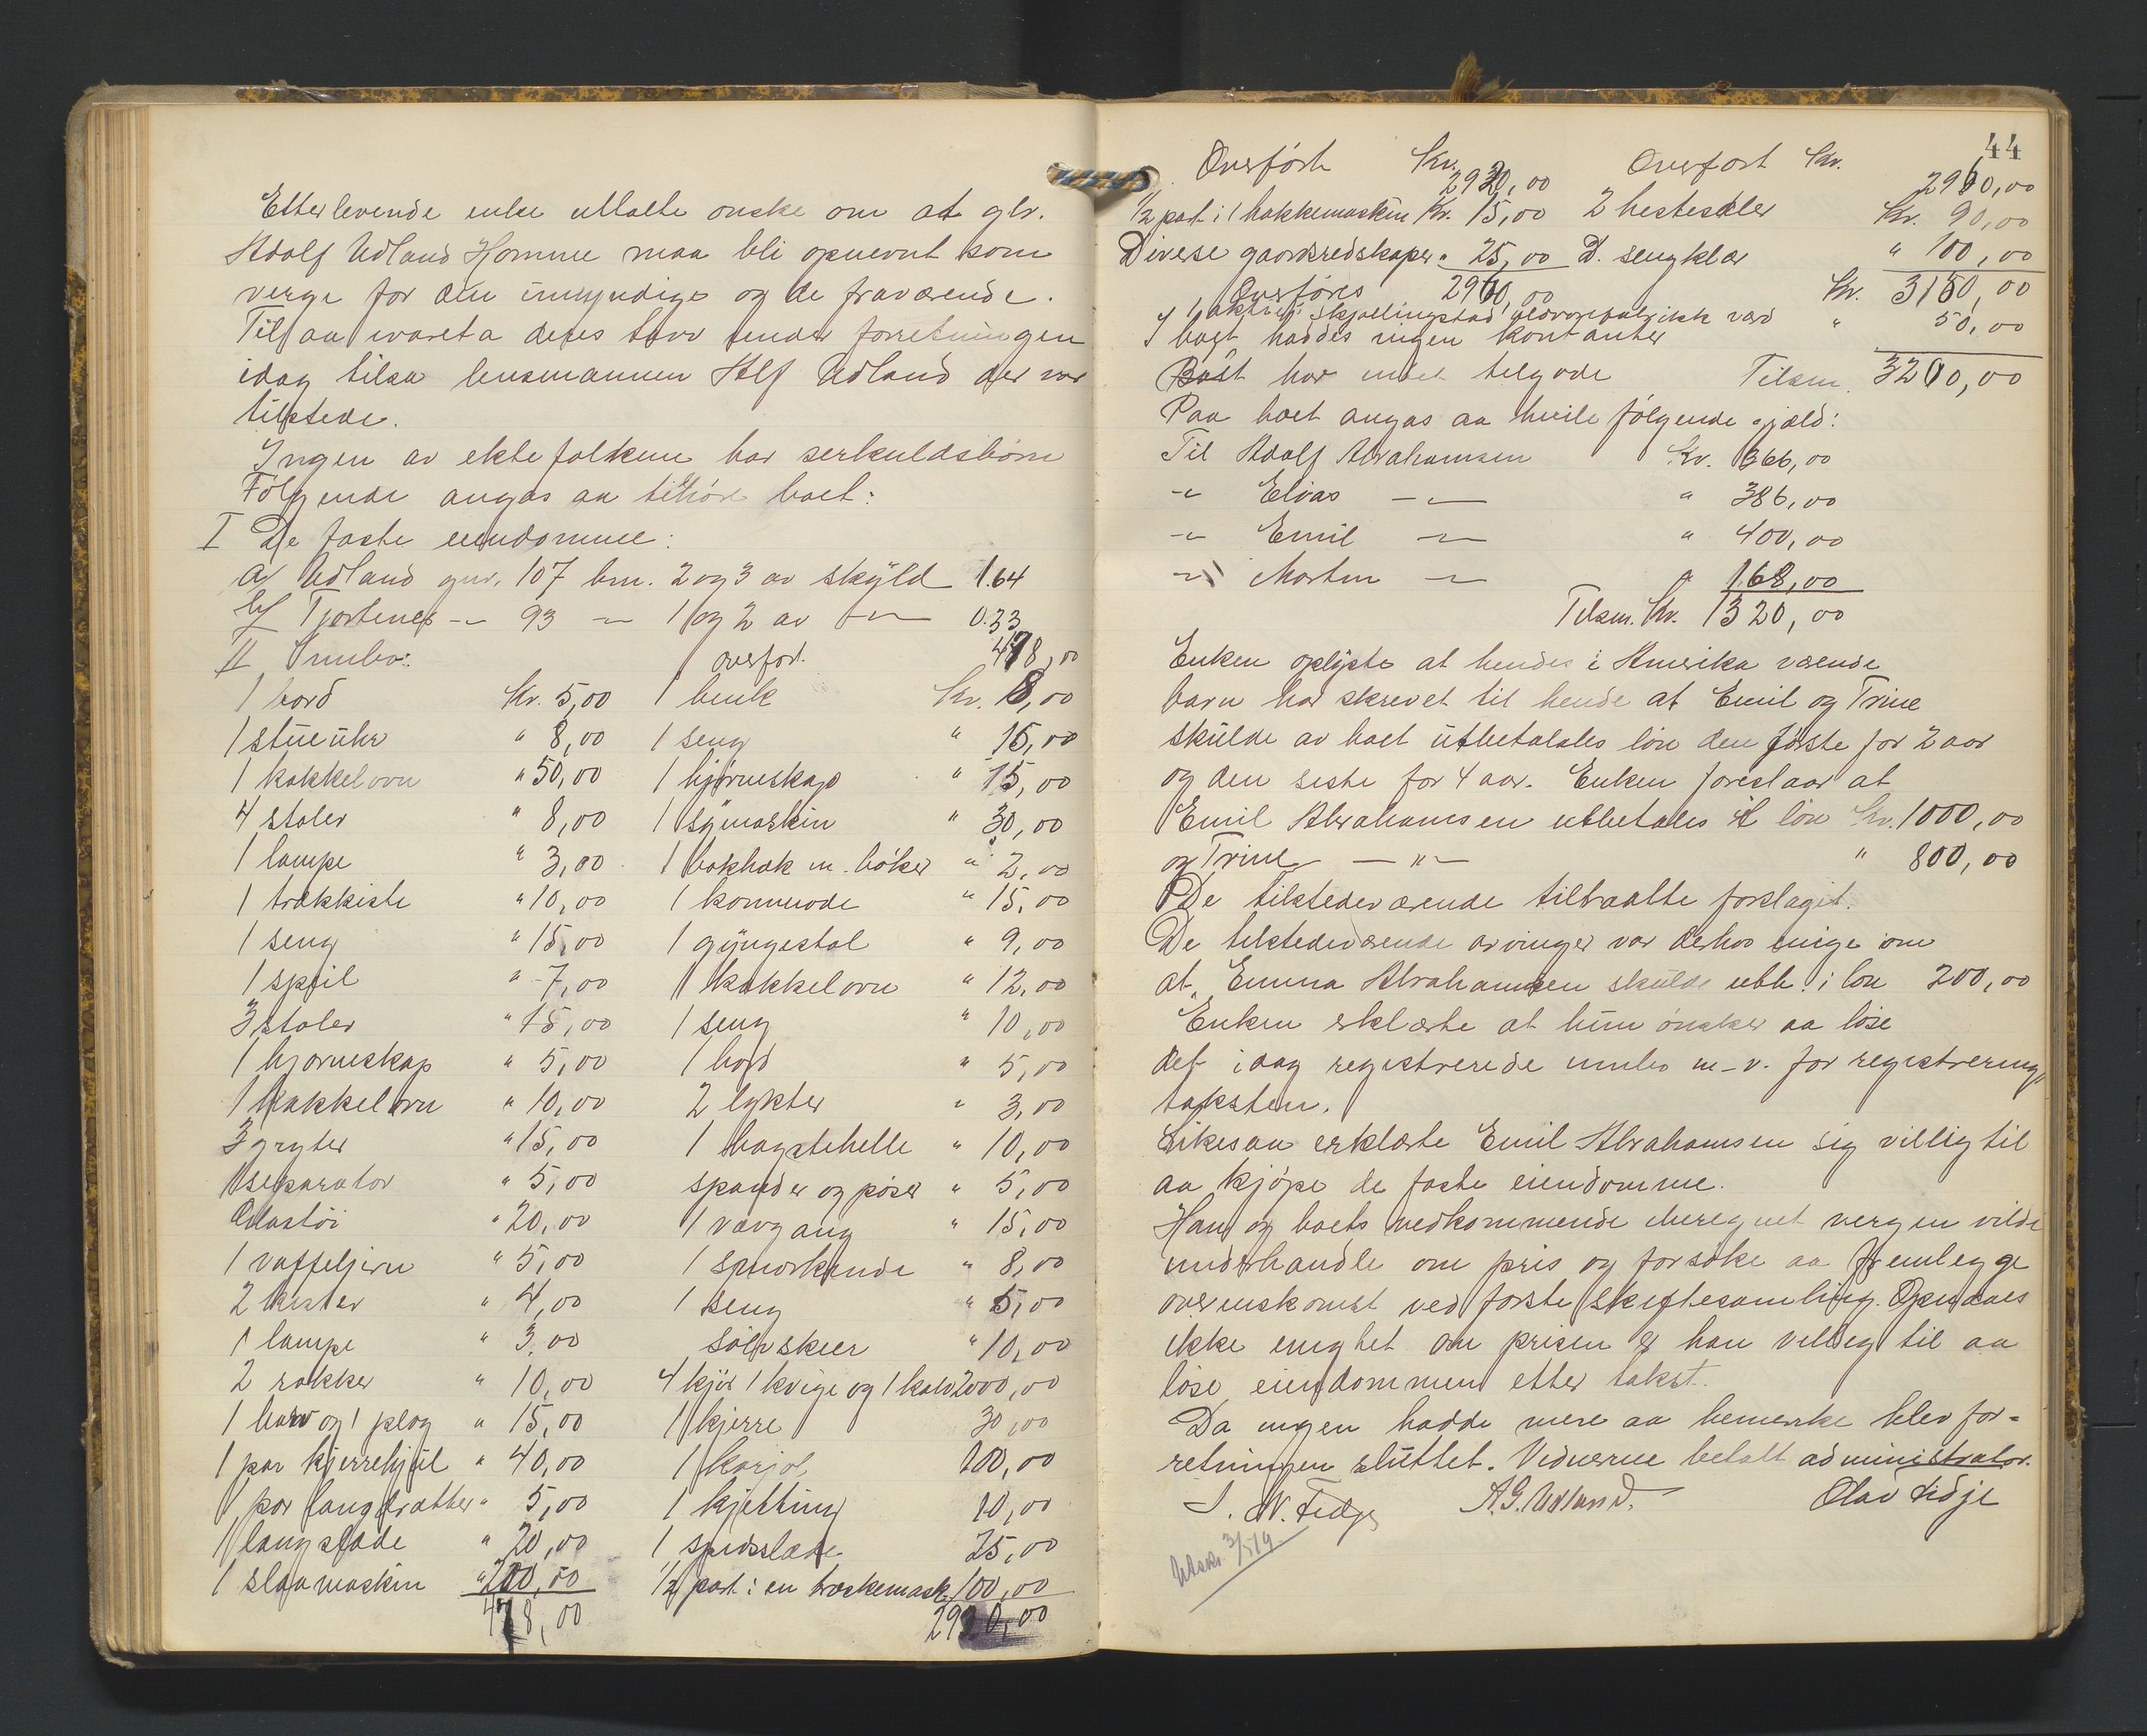 Etterlevende enke uttalte ønske om at gbr.
Adolf Udland Homme maa bli opnevnt som
verge for den umyndige og de fraværende.
Til aa ivareta deres tarv under forretningen
idag tilsa lensmannen Alf Udland der var
tilstede.
Ingen av ektefolkene har særkuldsbørn
Følgende angas aa tilhøre boet:
I De faste eiendomme:
a/ Udland gnr. 107 brn. 2 og 3 av skyld 1.64
b/ Tjørtenes -"- 93 -"- 1 og 2 av -"- 0.33
II Innbo: overfør. 478,00
1 bord Kr. 5,00 1 benk Kr. 8,00
1 stueuhr " 8,00 1 seng " 15,00
1 kakkelovn " 50,00 1 hjørneskap " 15,00
4 stoler " 8,00 1 symaskin " 30,00
1 lampe " 3,00 1 bokhak m. bøker " 2,00
1 trækkiste " 10,00 1 kommode " 15,00
1 seng " 15,00 1 gyngestol " 9,00
1 speil " 7,00 1 kakkelovn " 12,00
3 stoler " 15,00 1 seng " 10,00
1 hjørneskap " 5,00 1 bord " 5,00
1 kakkelovn " 10,00 2 lykter " 3,00
3 gryter " 15,00 1 bagstehelle " 10,00
1 separator " 5,00 spander og pøser " 5,00
Glastøi " 20,00 1 vævgang " 15,00
1 vaffeljern " 5,00 1 smørkinde " 8,00
2 kister " 4,00 1 seng " 5,00
1 lampe " 3,00 sølvskeer " 10,00
2 rokker " 10,00 4 kjør 1 kvige og 1 kalv 2000,00
1 harv og 1 plog " 15,00 1 kjerre 30,00
1 par kjerrehjul " 40,00 1 karjol 100,00
1 par langdratter " 5,00 1 kjetting 10,00
1 langslæde " 20,00 1 spidsslæde 25,00
1 slaamaskin " 200,00 1/2 part i en træskemask. 100,00
478,00 2920,00
44
Overført Kr. 2920,00 Overført Kr. 2960,00
1/2 part i 1 hakkemaskin Kr. 15,00 2 hesteseler Kr. 90,00
Diverse gaardsredskaper " 25,00 D. sengklær " 100,00
Overføres 2960,00 Kr. 3150,00
1 aktie i Skjellingstad uldvarefabrikk værd " 50,00
I boet haddes ingen kontanter
Boet har intet tilgode Tilsm. 3200,00
Paa boet angas aa hvile følgende gjæld:
Til Adolf Abrahamsen Kr. 366,00
-"- Elias -"- " 386,00
-"- Emil -"- " 400,00
-"- Morten -"- " 168,00
Tilsm. Kr. 1320,00
Enken oplyste at hendes i Amerika værende
barn har skrevet til hende at Emil og Trine
skulde av boet utbetalates løn den første for 2 aar
og den siste for 4 aar. Enken foreslaar at
Emil Abrahamsen utbetales i løn Kr. 1000,00
og Trine -"- " 800,00
De tilstedeværende tiltraatte forslaget.
De tilstedeværende arvinger var derhos enige om
at Emma Abrahamsen skulde utb. i løn 200,00
Enken erklærte at hun ønsker aa løse
det idag registrerede innbo m.v. for registrerings
taksten.
Likesaa erklærte Emil Abrahamsen sig villig til
aa kjøpe de faste eiendomme.
Han og boets vedkommende iberegnet vergen vilde
underhandle om pris og forsøke aa fremlegge
overenskomst ved første skiftesamling. Opnaaes
ikke enighet om prisen er han villig til aa
løse eiendommen etter takst.
Da ingen hadde mere aa bemerke blev for-
retningen sluttet. Vidnerne betalt administrator.
A. G. Udland. Olav Lidje
Utskr. 3/5 19